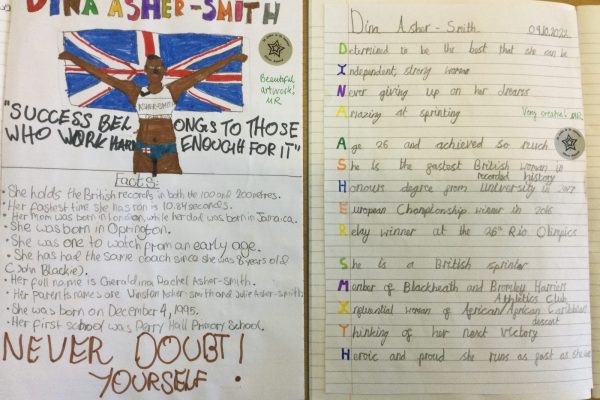 DINA ASHER-SMITH
ASHER-SMITH
Beautiful
artwork!
MR
"SUCCESS BEL ONGS TO THOSE
WHO WORK HARD ENOUGH FOR IT"
Facts:
• She holds the British records in both the 100 and 200 metres.
• Her fastest time she has ran is 10.84 seconds.
• Her mom was born in London, while her dad was born in Jamaica.
• She was born in Oprington.
• She was one to watch from an early age.
• She has had the same coach since she was 8 years old
(John Blackie).
• Her full name is Geraldina Rachel Asher-Smith.
• Her parents names are Winston Asher-Smith and Julie Asher-Smith
• She was born on December 4, 1995.
• Her first school was Perry Hall Primary School.
NEVER DOUBT!
YOURSELF
Dina Asher-Smith 09.10.2022
Determined to be the best that she can be
Independent, strong woman
Never giving up on her dreams
Amazing at sprinting Very creative! MR
Age 26 and achieved so much
She is the fastest British woman in
recorded history
Honours degree from university in 2017
European Championship winner in 2016
Relay winner at the 26th Rio Olympics
She is a British sprinter
Member of Blackheath and Bromley Harriers
Athletics Club
Influential woman of African/African Caribbean
descent
Thinking of her next victory
Heroic and proud she runs as fast as she can